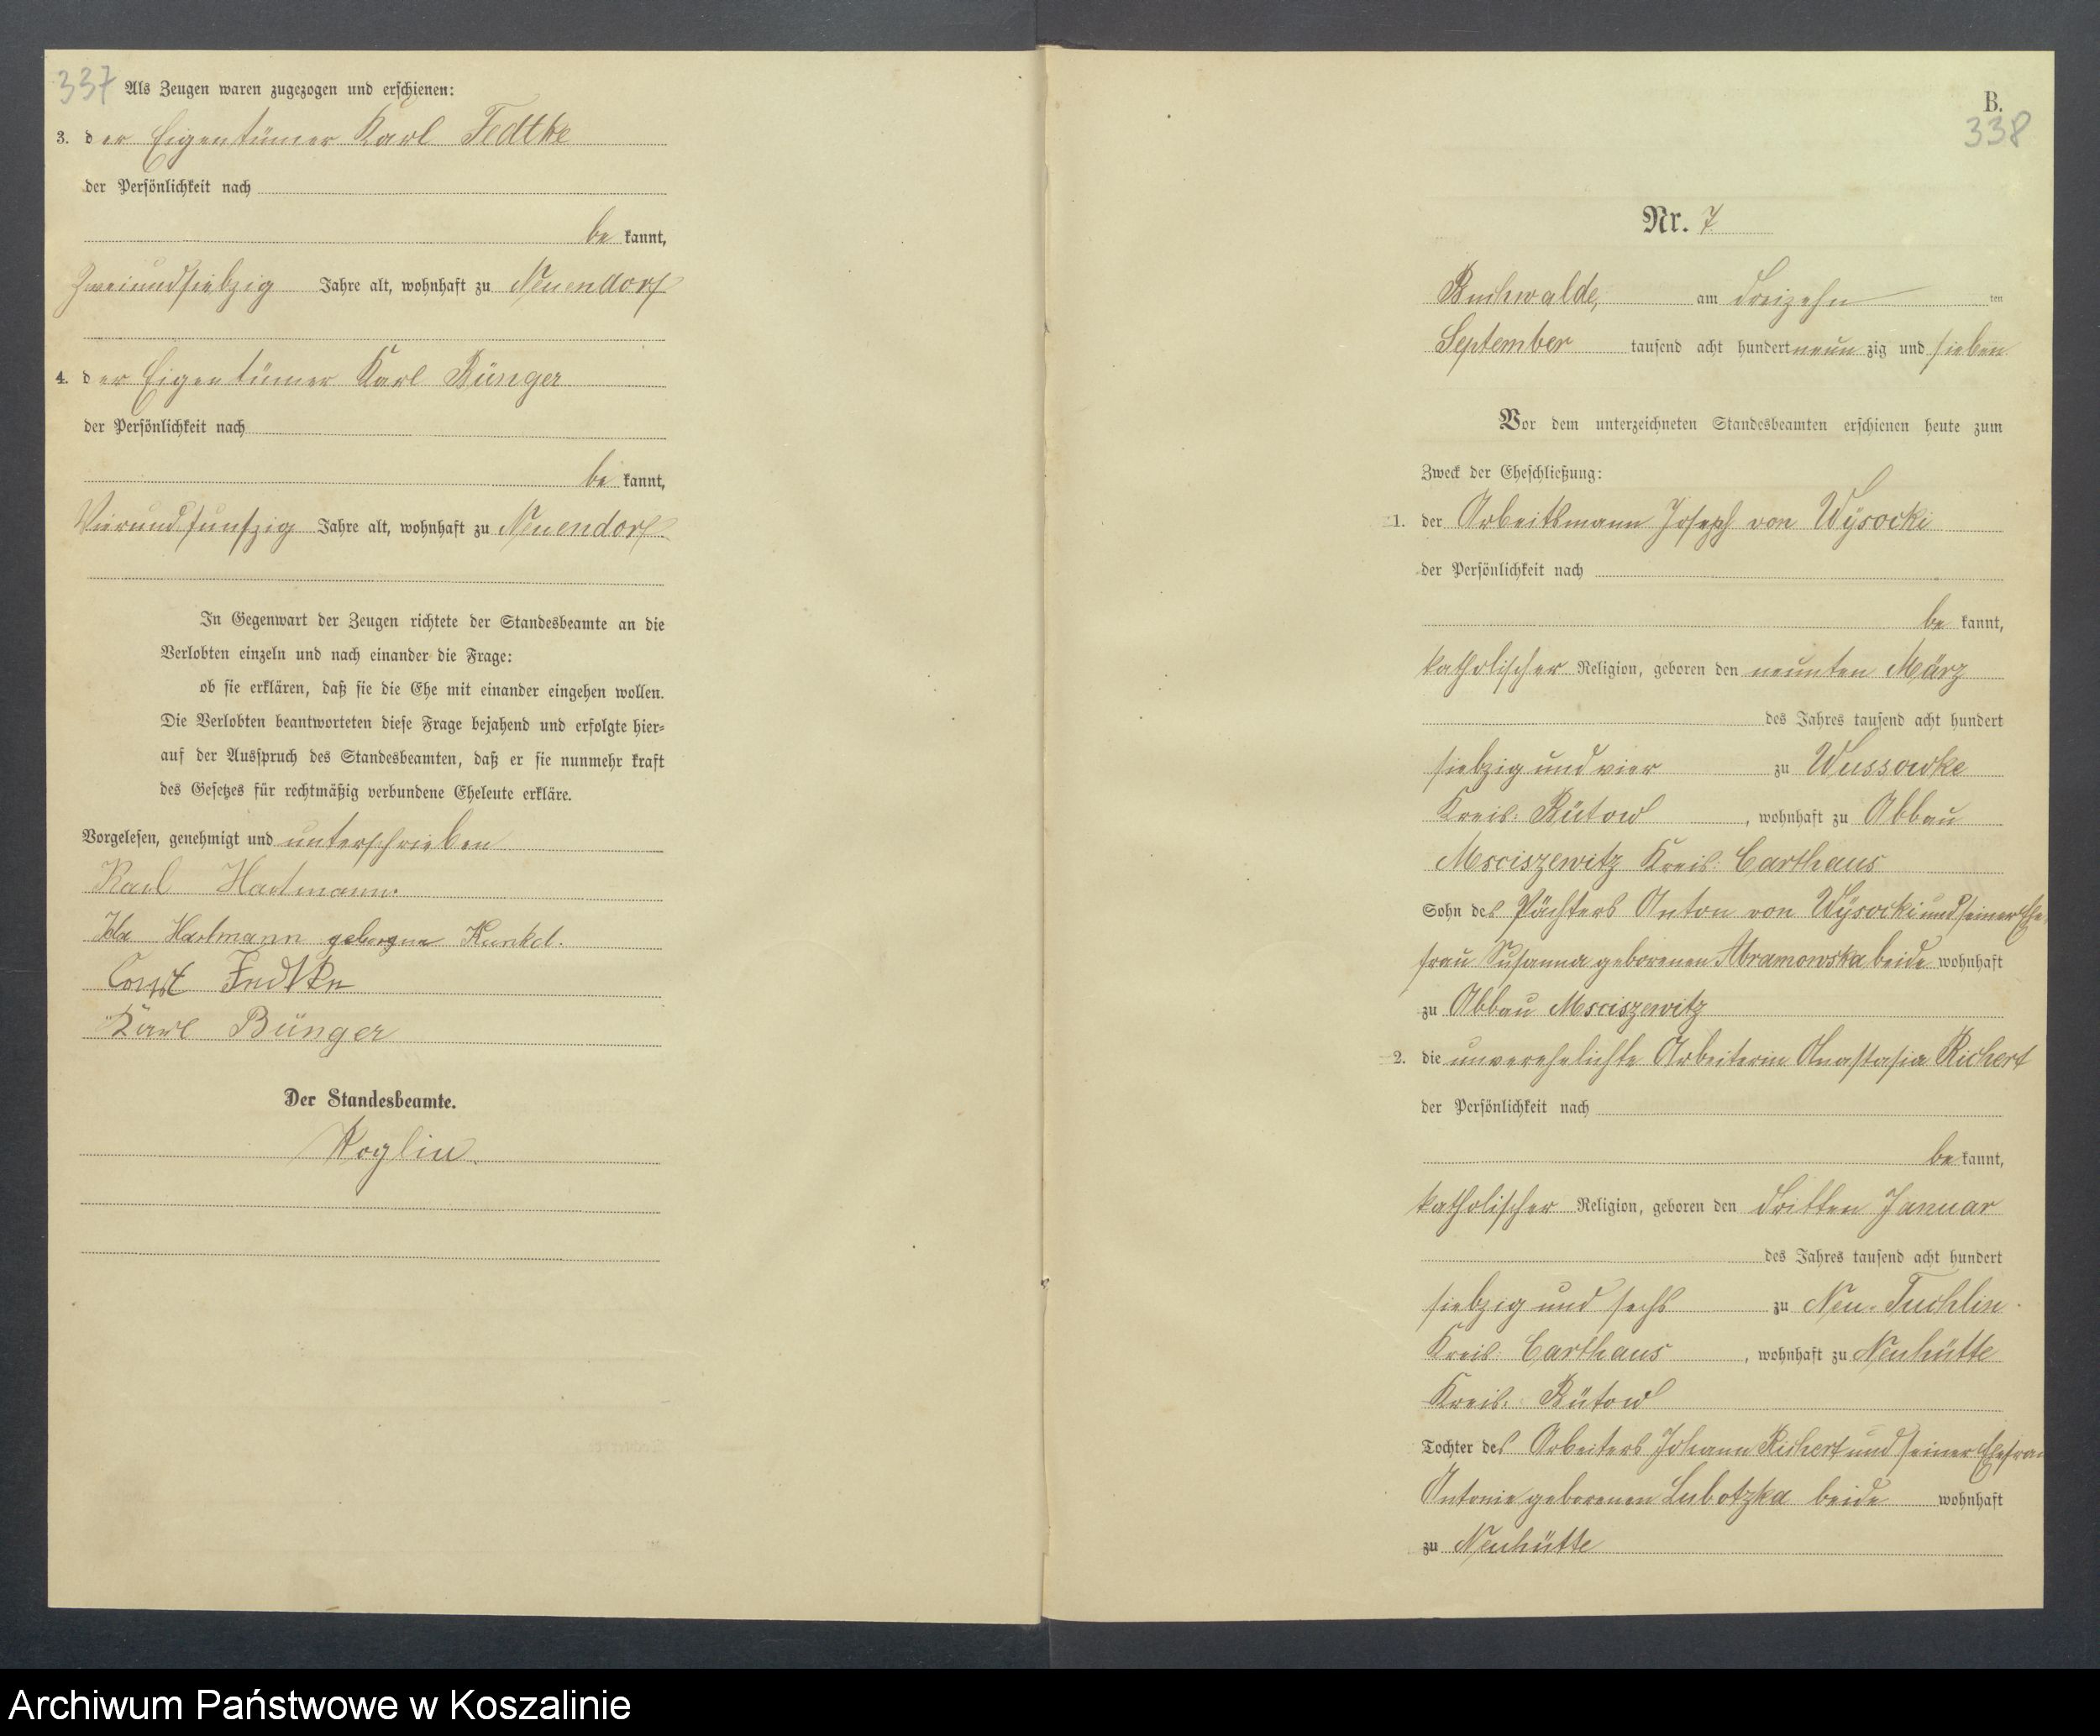 337
Als Zeugen waren zugezogen und erschienen:
3. der Eigentümer Karl Fedtke
der Persönlichkeit nach
be kannt,
Zweiundsiebzig Jahre alt, wohnhaft zu Neuendorf
4. der Eigentümer Karl Bünger
der Persönlichkeit nach
be kannt,
Vierundfunfzig Jahre alt, wohnhaft zu Neuendorf
In Gegenwart der Zeugen richtete der Standesbeamte an die
Verlobten einzeln und nach einander die Frage:
ob sie erklären, daß sie die Ehe mit einander eingehen wollen.
Die Verlobten beantworteten diese Frage bejahend und erfolgte hier-
auf der Ausspruch des Standesbeamten, daß er sie nunmehr kraft
des Gesetzes für rechtmäßig verbundene Eheleute erkläre.
Vorgelesen, genehmigt und unterschrieben
Karl Hartmann.
Ida Hartmann geborene Kunkel.
Fedtke
Karl Bünger
Der Standesbeamte.
Koglin.
B.
338
Nr. 7
Buchwalde, am dreizehn ten
September tausend acht hundert neun zig und sieben
Vor dem unterzeichneten Standesbeamten erschienen heute zum
Zweck der Eheschließung:
1. der Arbeitsmann Joseph von Wÿsocki
der Persönlichkeit nach
be kannt,
katholischer Religion, geboren den neunten März
des Jahres tausend acht hundert
siebzig und vier zu Wussowke
Kreis: Bütow, wohnhaft zu Abbau
Msciszewitz Kreis: Carthaus
Sohn des Pächters Anton von Wÿsocki und seiner Ehe
frau Susanna geborenen Abramowska beide wohnhaft
zu Abbau Msciszewitz
2. die unverehelichte Arbeiterin Anastasia Richert
der Persönlichkeit nach
be kannt,
katholischer Religion, geboren den dritten Januar
des Jahres tausend acht hundert
siebzig und sechs zu Neu-Tuchlin
Kreis: Carthaus, wohnhaft zu Neuhütte
Kreis: Bütow
Tochter des Arbeiters Johann Richert und seiner Ehefrau
Antonie geborenen Lubotzka beide wohnhaft
zu Neuhütte
Archiwum Państwowe w Koszalinie